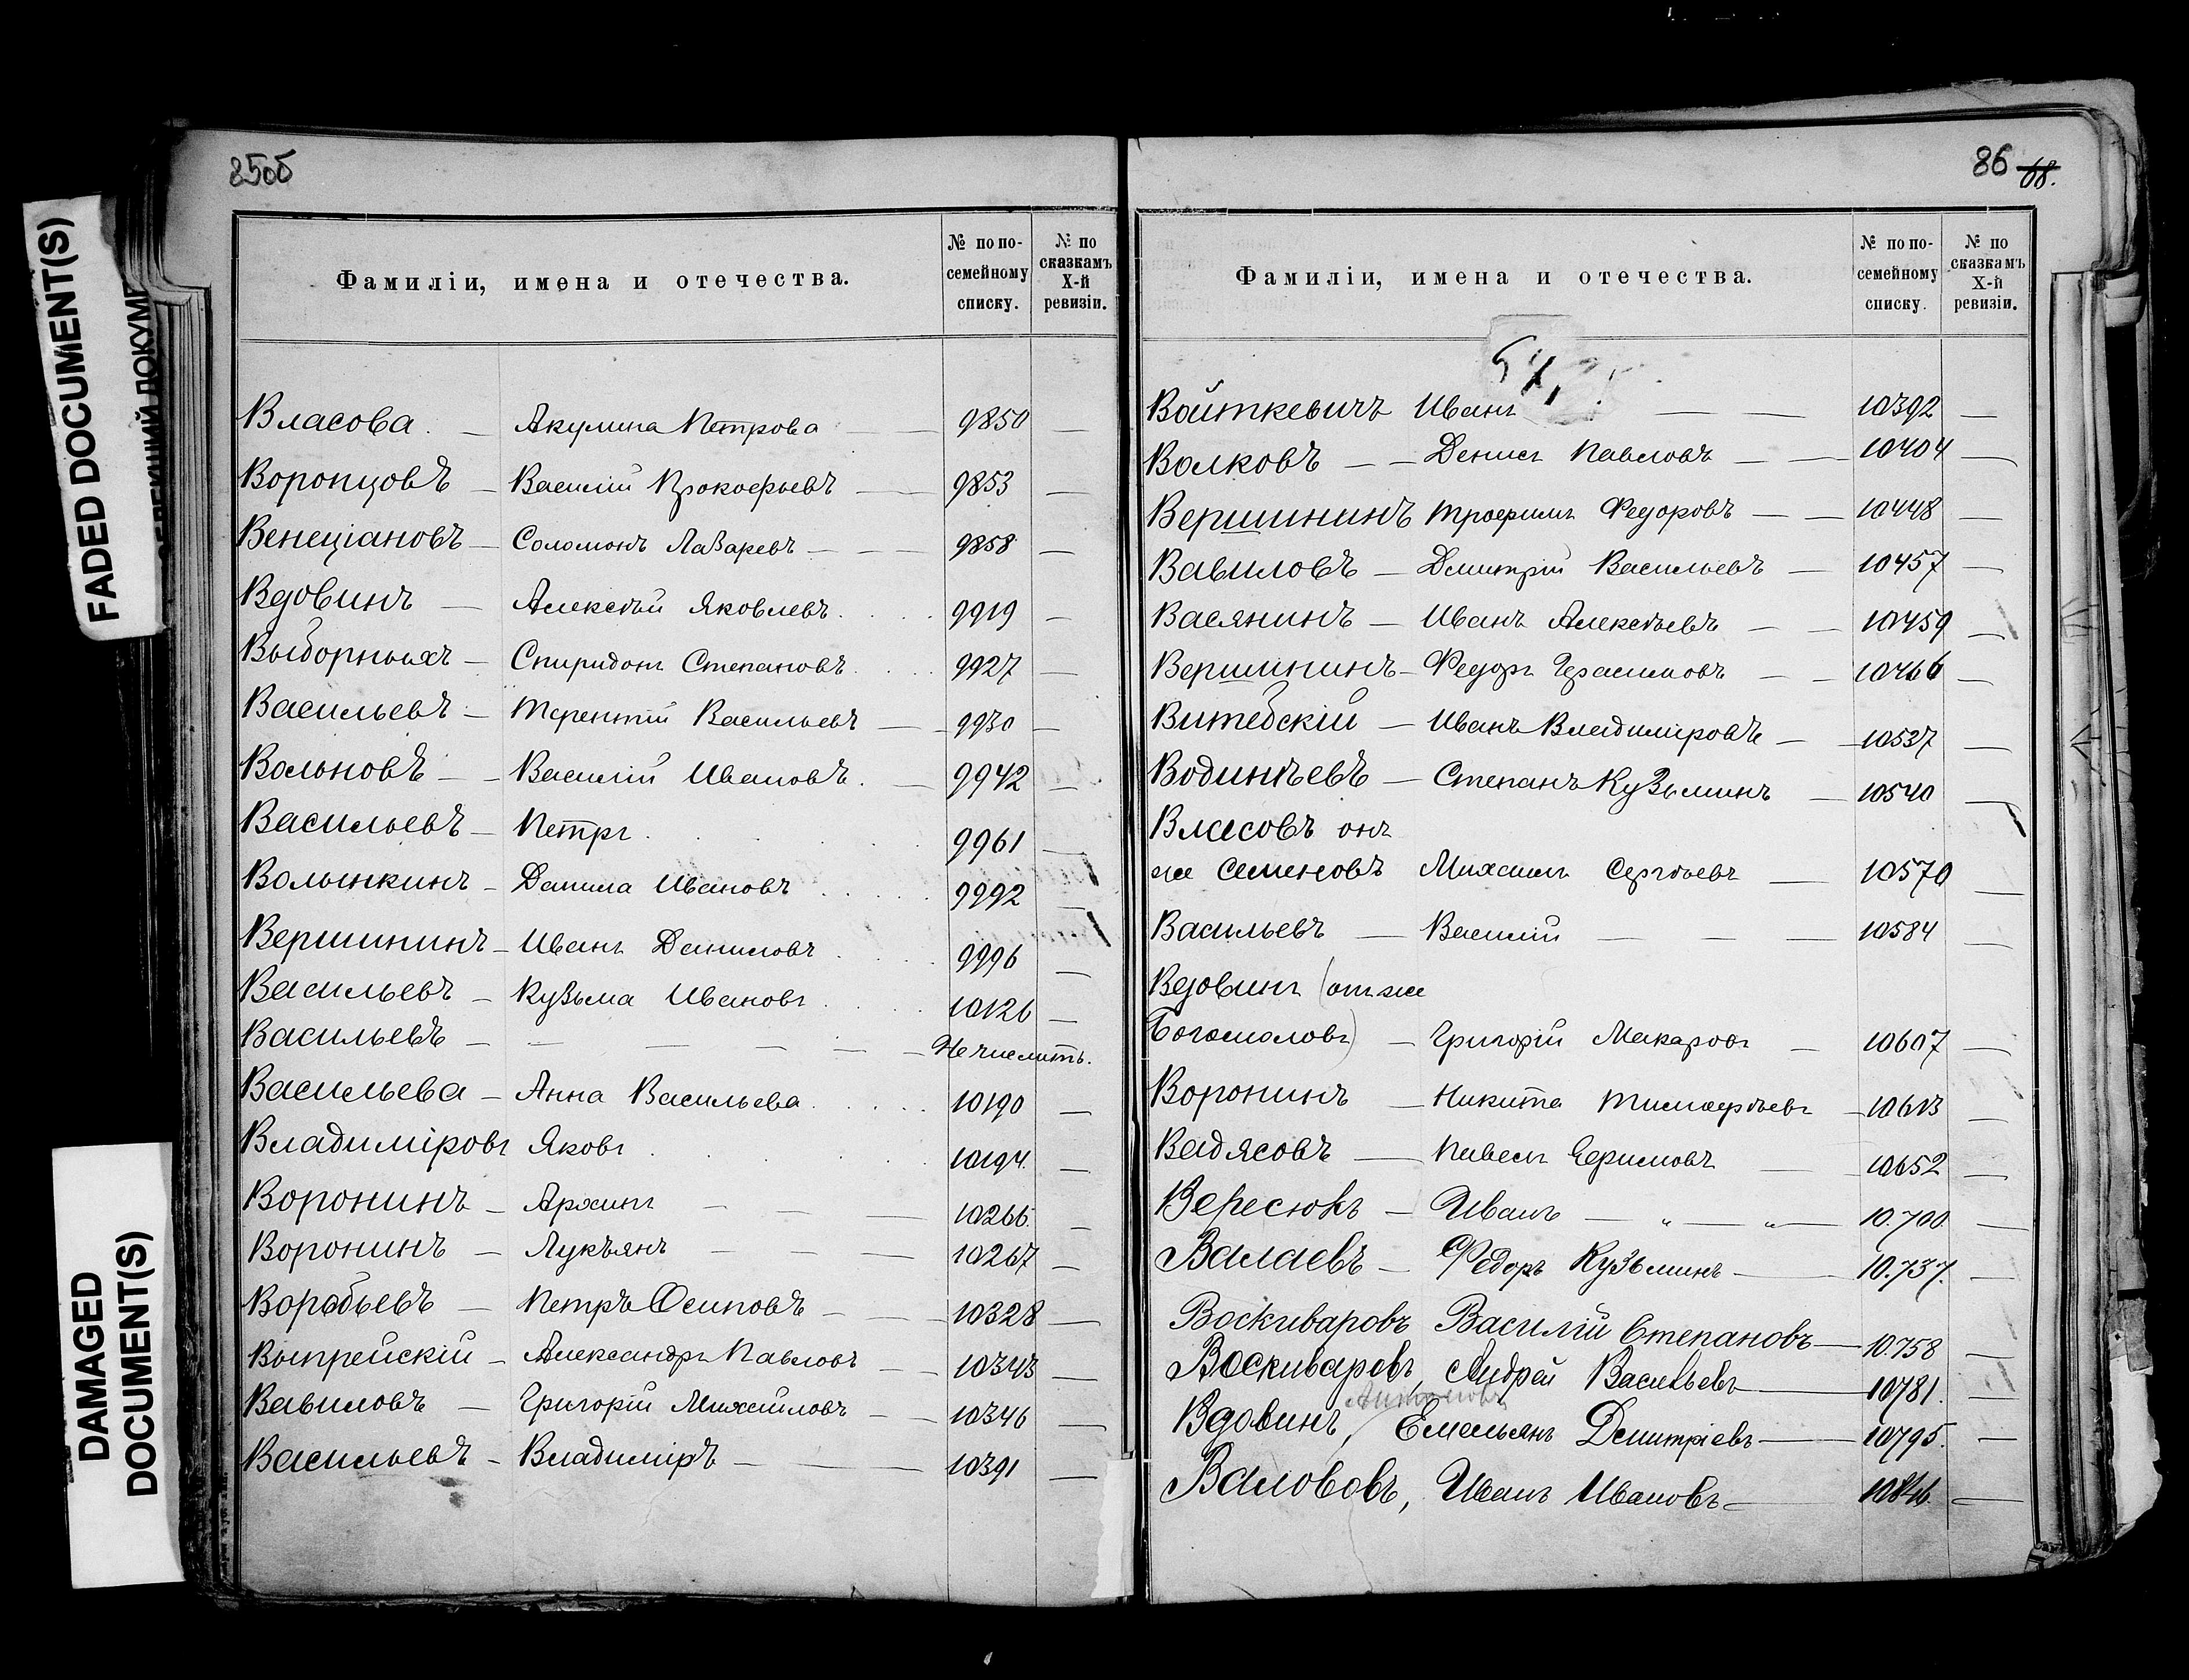 FADED DOCUMENT(S)
DAMAGED
DOCUMENT(S)
85об
Фамиліи, имена и отечества.
№ по по-
семейному
списку.
№ по
сказкамъ
X-й
ревизіи.
Власова. — Акулина Петрова — — 9850 —
Воронцовъ — Василій Прокофьевъ — 9853 —
Венеціановъ — Соломонъ Лазаревъ — — — 9858 —
Вдовинъ — Алексѣй Яковлевъ. 9919 —
Выборныхъ — Спиридонъ Степановъ. 9927 —
Васильевъ — Терентій Васильевъ — 9930 —
Вольновъ — Василій Ивановъ. — 9942 —
Васильевъ — Петръ 9961 —
Волынкинъ — Данила Ивановъ 9992 —
Вершининъ — Иванъ Даниловъ 9996 —
Васильевъ — Кузьма Ивановъ 10126 —
Васильевъ — — — — — Не числитъ.
Васильева — Анна Васильева 10190 —
Владиміровъ Яковъ 10194. —
Воронинъ — Архипъ — — — 10266. —
Воронинъ — Лукьянъ — — — 10267 —
Воробьевъ — Петръ Осиповъ — — 10328 —
Выпрейскій — Александръ Павловъ — 10343 —
Вавиловъ — Григорій Михайловъ — — 10346 —
Васильевъ — Владиміръ — — 10391 —
86 68.
Фамиліи, имена и отечества.
№ по по-
семейному
списку.
№ по
сказкамъ
X-й
ревизіи.
Войткевичъ Иванъ — — 10392 —
Волковъ — — Денисъ Павловъ — — 10404 —
Вершининъ Трофимъ Федоровъ — — 10448 —
Вавиловъ — Дмитрій Васильевъ — 10457 —
Васянинъ — Иванъ Алексѣевъ — — 10459 —
Вершининъ — Федоръ Герасимовъ — — 10466 —
Витебскій — Иванъ Владиміровъ — — 10537 —
Водинѣевъ — Степанъ Кузьминъ — 10540 —
Власовъ онъ
же Семеновъ Михаилъ Сергѣевъ — 10570 —
Васильевъ — Василій — — — 10584 —
Вдовинъ (онъ же
Богомоловъ) — Григорій Макаровъ — 10607 —
Воронинъ — Никита Тимофѣевъ — 10613 —
Вадясовъ — Павелъ Ефимовъ — 10652 —
Вересюкъ — Иванъ — „ — „ — 10.700 —
Валаевъ — Федоръ Кузьминъ — 10.737. —
Воскиваровъ Василій Степановъ — 10.758 —
Воскиваровъ, Андрей Васильевъ — 10781. —
Вдовинъ, Емельянъ Дмитріевъ — 10795. —
Валововъ, Иванъ Ивановъ — 10846. —